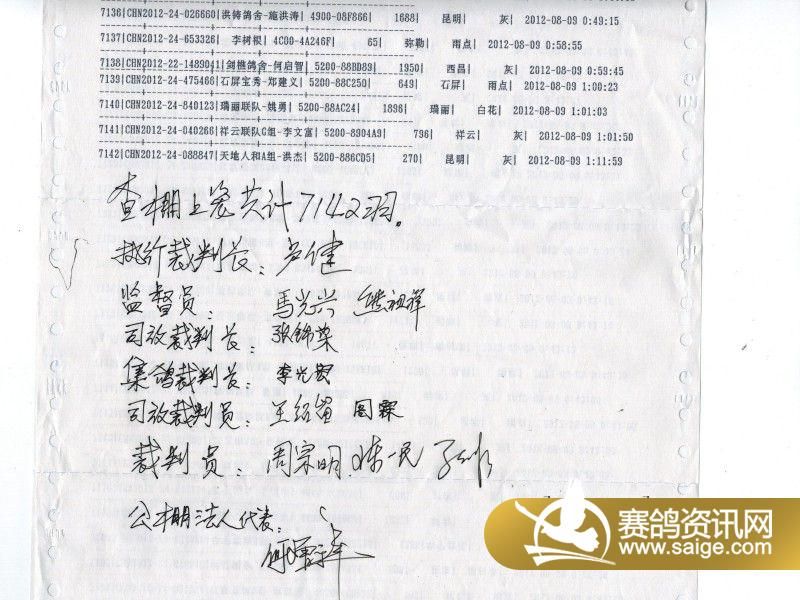 7136|CHN2012-24-026660|洪铸鸽舍-施洪涛| 4900-08F866| 1688| 昆明| 灰| 2012-08-09 0:49:15
7137|CHN2012-24-653326| 李树根| 4C00-4A246F| 65| 弥勒| 雨点| 2012-08-09 0:58:55
7138|CHN2012-22-1489041|剑桥鸽舍-何启智| 5200-88BD89| 1950| 西昌| 灰| 2012-08-09 0:59:45
7139|CHN2012-24-475466|石屏宝秀-郑建义| 5200-88C250| 649| 石屏| 雨点| 2012-08-09 1:00:23
7140|CHN2012-24-840123|瑞丽联队-姚勇| 5200-88AC24| 1896| 瑞丽| 白花| 2012-08-09 1:01:03
7141|CHN2012-24-040266|祥云联队G组-李文富| 5200-8904A9| 796| 祥云| 灰| 2012-08-09 1:01:50
7142|CHN2012-24-088847|天地人和A组-洪杰| 5200-886CD5| 270| 昆明| 灰| 2012-08-09 1:11:59
查棚上笼共计7142羽。
执行裁判长：卢健
监督员：馬光兴 熊祖祥
司放裁判长：张锦荣
集鸽裁判长：李光宏
司放裁判员：王绍富 周霖
裁判员：周宗明 陈一民
公棚法人代表：
赛鸽资讯网
www.saige.com